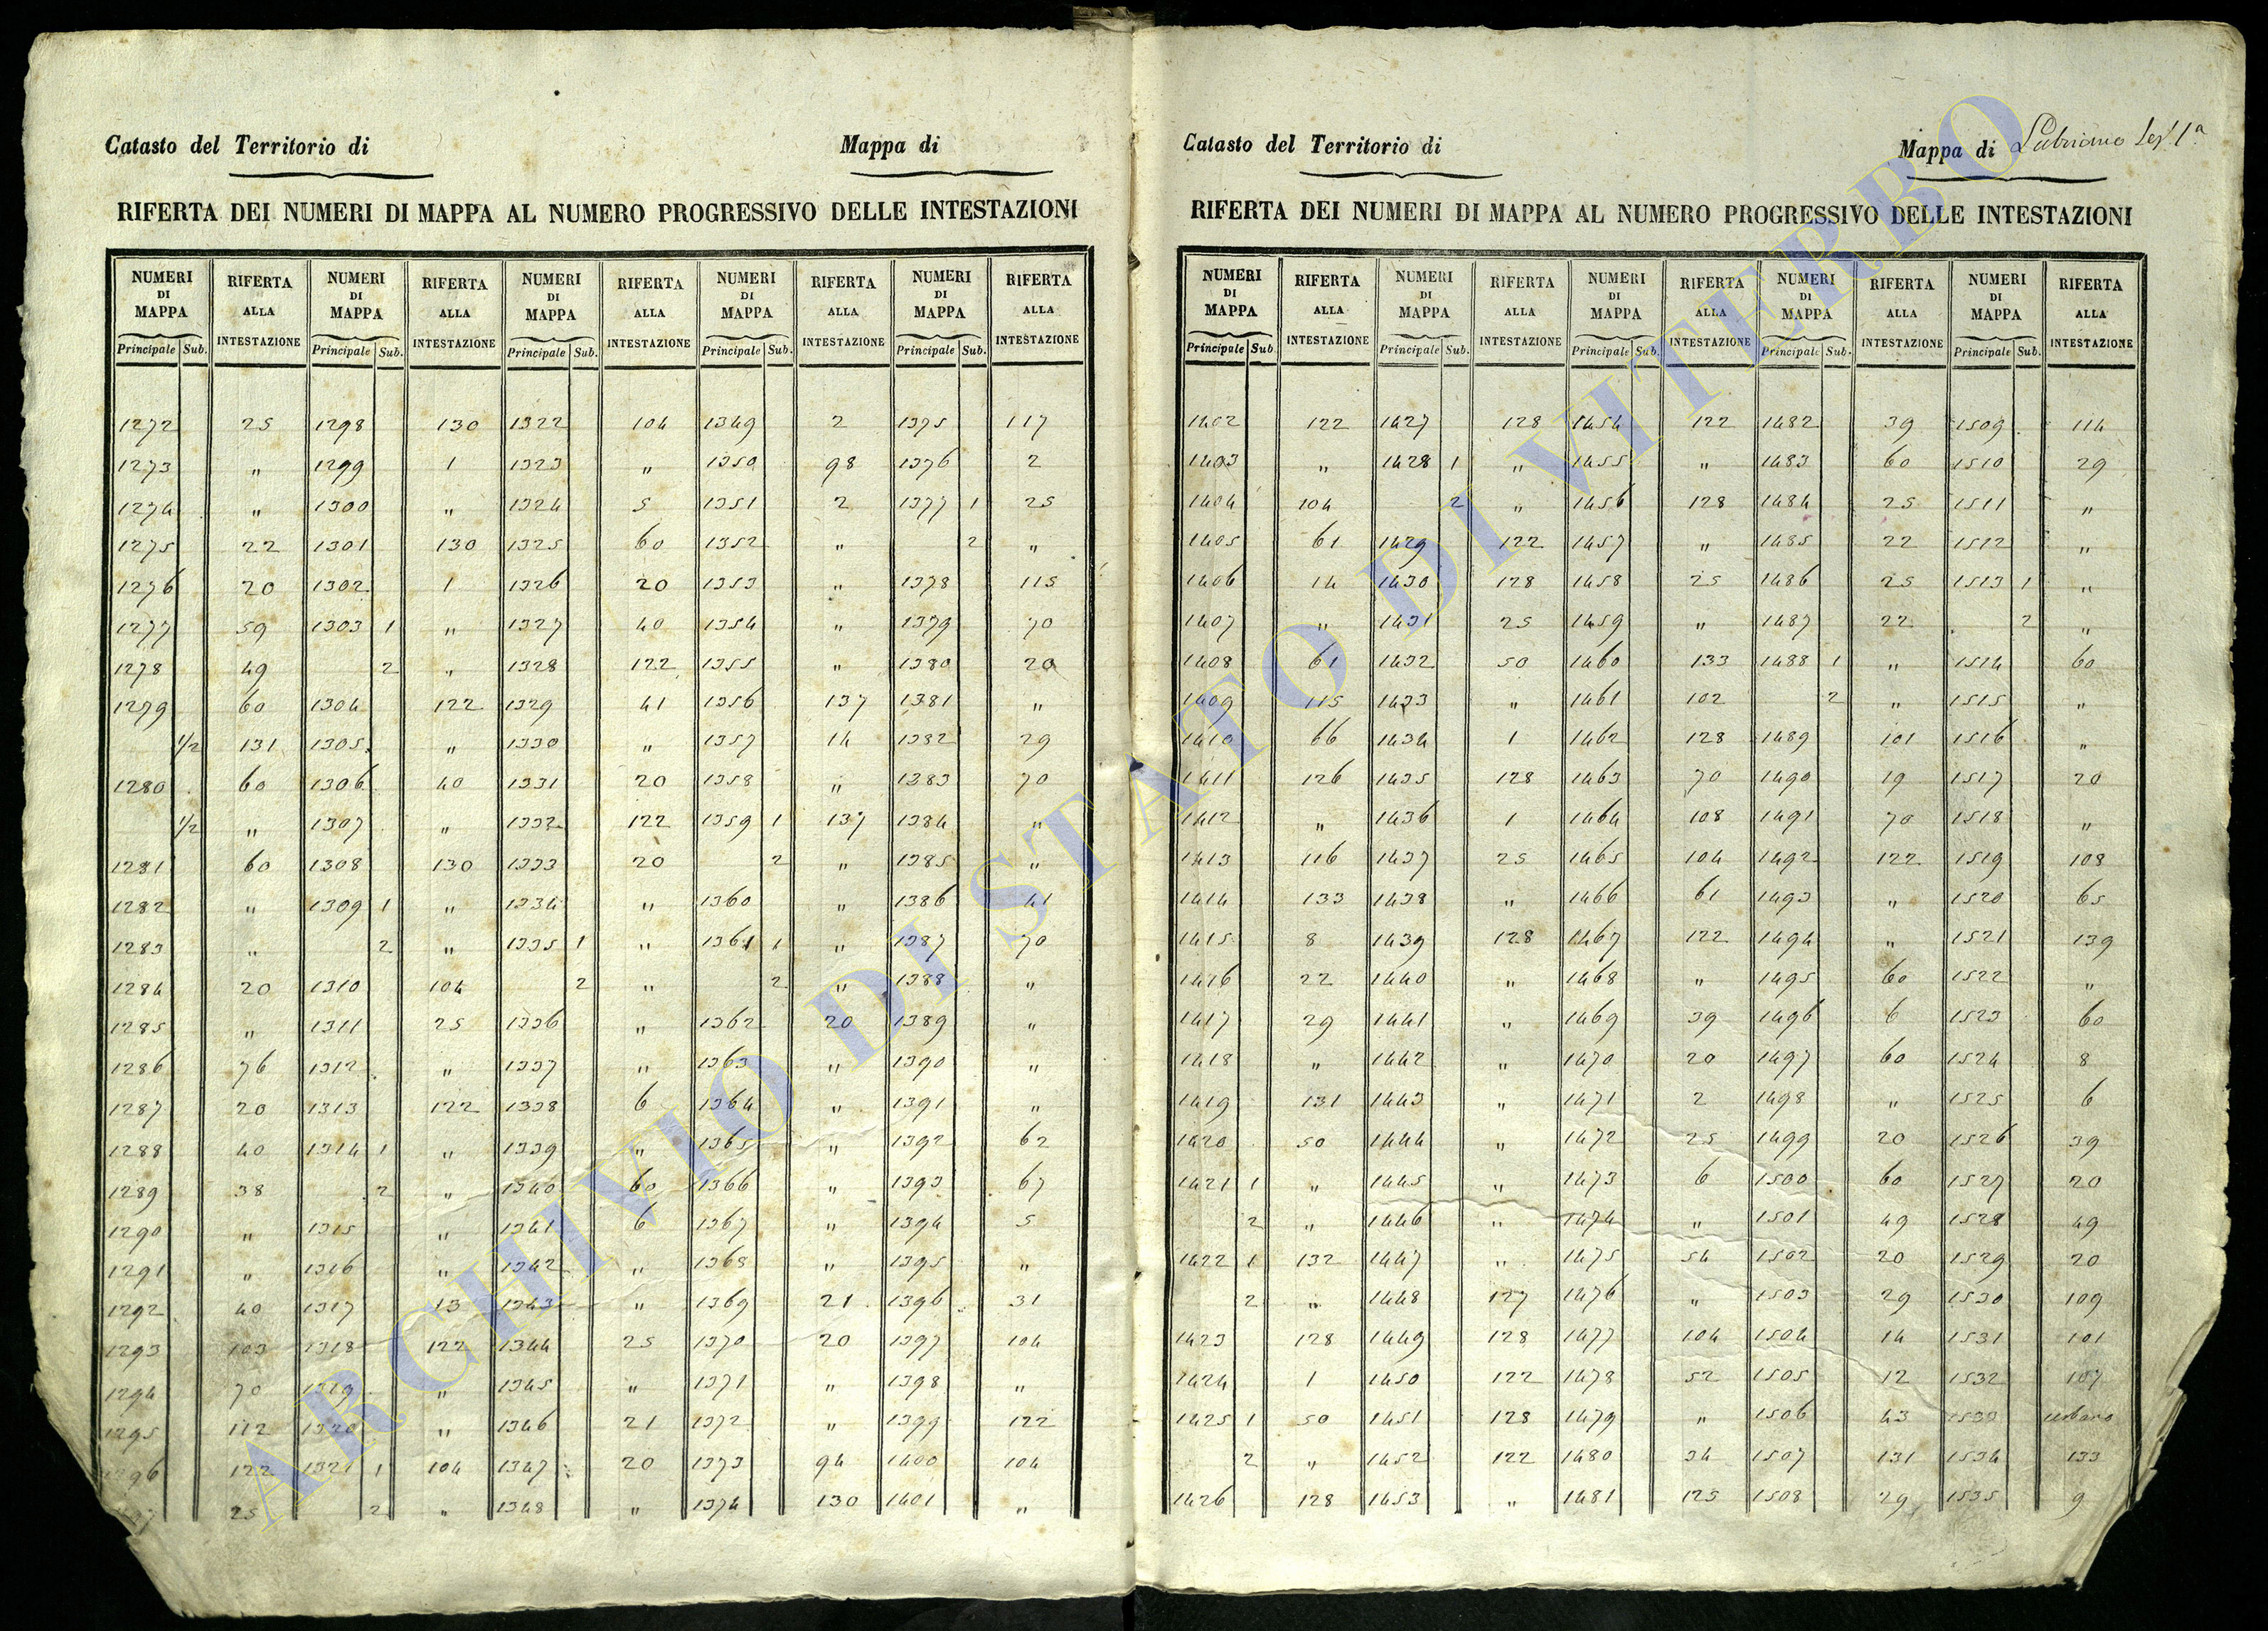 Catasto del Territorio di Mappa di
RIFERTA DEI NUMERI DI MAPPA AL NUMERO PROGRESSIVO DELLE INTESTAZIONI
NUMERI DI MAPPA RIFERTA ALLA INTESTAZIONE NUMERI DI MAPPA RIFERTA ALLA INTESTAZIONE NUMERI DI MAPPA RIFERTA ALLA INTESTAZIONE NUMERI DI MAPPA RIFERTA ALLA INTESTAZIONE NUMERI DI MAPPA RIFERTA ALLA INTESTAZIONE
Principale Sub. Principale Sub. Principale Sub. Principale Sub. Principale Sub.
1272 25 1298 130 1322 104 1349 2 1375 117
1273 " 1299 1 1323 " 1350 98 1376 2
1274 " 1300 " 1324 5 1351 2 1377 1 25
1275 22 1301 130 1325 60 1352 " 2 "
1276 20 1302 1 1326 20 1353 " 1378 115
1277 59 1303 1 " 1327 40 1354 " 1379 70
1278 49 2 " 1328 122 1355 " 1380 20
1279 60 1304 122 1329 41 1356 137 1381 "
1/2 131 1305 " 1330 " 1357 14 1382 29
1280 60 1306 40 1331 20 1358 " 1383 70
1/2 " 1307 " 1332 122 1359 1 137 1384 "
1281 60 1308 130 1333 20 2 " 1385 "
1282 " 1309 1 " 1334 " 1360 " 1386 41
1283 " 2 " 1335 1 " 1361 1 " 1387 70
1284 20 1310 104 2 " 2 " 1388 "
1285 " 1311 25 1336 " 1362 20 1389 "
1286 76 1312 " 1337 " 1363 " 1390 "
1287 20 1313 122 1338 6 1364 " 1391 "
1288 40 1314 1 " 1339 " 1365 " 1392 62
1289 38 2 " 1340 60 1366 " 1393 67
1290 " 1315 " 1341 6 1367 " 1394 5
1291 " 1316 " 1342 " 1368 " 1395 "
1292 40 1317 13 1343 " 1369 21 1396 31
1293 103 1318 122 1344 25 1370 20 1397 104
1294 70 1319 " 1345 " 1371 " 1398 "
1295 112 1320 " 1346 21 1372 " 1399 122
1296 122 1321 1 104 1347 20 1373 94 1400 104
25 2 " 1348 " 1374 130 1401 "
Catasto del Territorio di Mappa di Lubriano Sez. 1ª
RIFERTA DEI NUMERI DI MAPPA AL NUMERO PROGRESSIVO DELLE INTESTAZIONI
NUMERI DI MAPPA RIFERTA ALLA INTESTAZIONE NUMERI DI MAPPA RIFERTA ALLA INTESTAZIONE NUMERI DI MAPPA RIFERTA ALLA INTESTAZIONE NUMERI DI MAPPA RIFERTA ALLA INTESTAZIONE NUMERI DI MAPPA RIFERTA ALLA INTESTAZIONE
Principale Sub. Principale Sub. Principale Sub. Principale Sub. Principale Sub.
1402 122 1427 128 1454 122 1482 39 1509 114
1403 " 1428 1 " 1455 " 1483 60 1510 29
1404 104 2 " 1456 128 1484 25 1511 "
1405 61 1429 122 1457 " 1485 22 1512 "
1406 14 1430 128 1458 25 1486 25 1513 1 "
1407 " 1431 25 1459 " 1487 22 2 "
1408 61 1432 50 1460 133 1488 1 " 1514 60
1409 115 1433 " 1461 102 2 " 1515 "
1410 66 1434 1 1462 128 1489 101 1516 "
1411 126 1435 128 1463 70 1490 19 1517 20
1412 " 1436 1 1464 108 1491 70 1518 "
1413 116 1437 25 1465 104 1492 122 1519 108
1414 133 1438 " 1466 61 1493 " 1520 65
1415 8 1439 128 1467 122 1494 " 1521 139
1416 22 1440 " 1468 " 1495 60 1522 "
1417 29 1441 " 1469 39 1496 6 1523 60
1418 " 1442 " 1470 20 1497 60 1524 8
1419 131 1443 " 1471 2 1498 " 1525 6
1420 50 1444 " 1472 25 1499 20 1526 39
1421 1 " 1445 " 1473 6 1500 60 1527 20
2 " 1446 " 1474 " 1501 49 1528 49
1422 1 132 1447 " 1475 54 1502 20 1529 20
2 " 1448 127 1476 " 1503 29 1530 109
1423 128 1449 128 1477 104 1504 14 1531 101
1424 1 1450 122 1478 52 1505 12 1532 107
1425 1 50 1451 128 1479 " 1506 43 1533 urbano
2 " 1452 122 1480 34 1507 131 1534 133
1426 128 1453 " 1481 125 1508 29 1535 9
ARCHIVIO DI STATO DI VITERBO